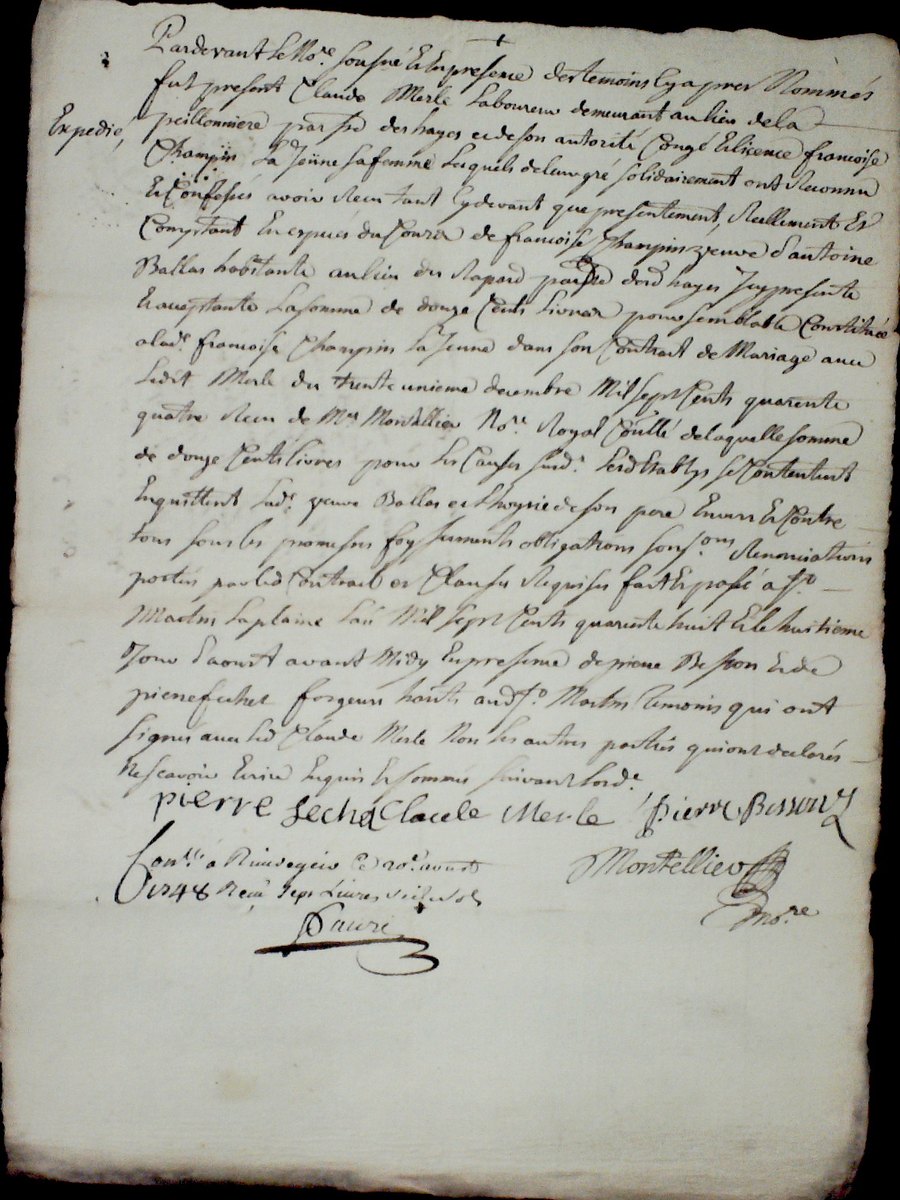 Pardevant le No.re sousne et en presence des temoins cy apres Nommés
fut present Claude Merle Laboureur demeurant au lieu de la
Expedié,
peillonniere par.sse des hayes et de son autorité Congé et licence francoise
Champin La Jeune sa femme Lesquels de leur gré solidairement ont Reconnu
Et Confessés avoir Receu tant cy devant que presentement, Reellement Et
Comptant En espuès du Cours de francoise Champin veuve d'antoine
Ballas habitante au lieu du Rapard par.sse desd hayes Icy presente
Et aceptante La somme de douze Cents Livres pour semblable Constituée
a lad.e francoise Champin La Jeune dans son Contrait de Mariage avec
Ledit Merle du trente unieme decembre Mil sept Cents quarente
quatre Receu de M.e Montellier No.re Royal de laquelle somme
de douze Cents livres pour Les Causes susd.s Lesd Etablys se Contentent
En quittent Lad.e veuve Ballas et L'hoyrie de son pere Envers Et Contre
tous sous les promesses foy serments obligations sous.ons Renonciations
portés par led Contrait et Clauses Requises fait Et passé a S.t
Martin La plaine L'an Mil sept Cents quarente huit Et le huitieme
Jour d'aoust avant Midy En presence de pierre Besson Et de
pierre fechet forgeurs hants aud S.t Martin temoins qui ont
signés avec led Claude Merle Non Les autres partiés qui ont declarés
Ne scavoir Ecrire Enquis Et sommés suivant Lord.e
pierre fechet Claude Merle Pierre Besson
Montellier
No.re
Con.llé a Rivedegier Ce 20.e aoust
1748 Receu sept Livres
faure